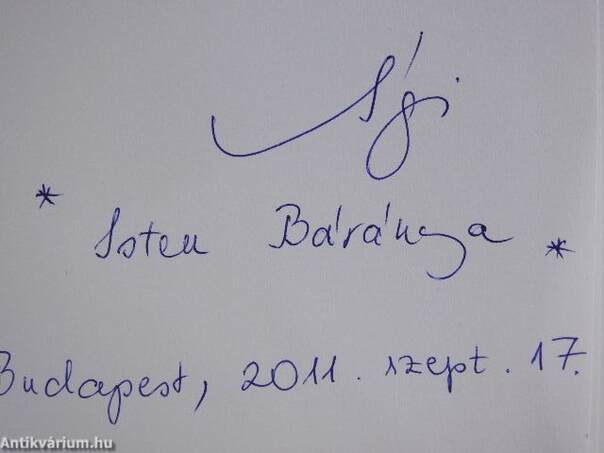 Ági
* Isten Báránya *
Budapest, 2011. szept. 17.
Antikvárium.hu